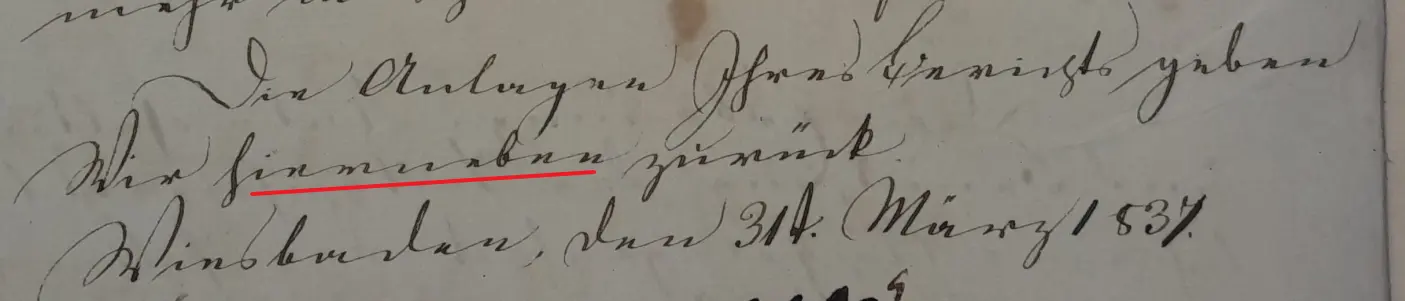 mehr in
Die Anlagen Ihres Berichts geben
Wir hierneben zurück.
Wiesbaden, den 31t. März 1837.